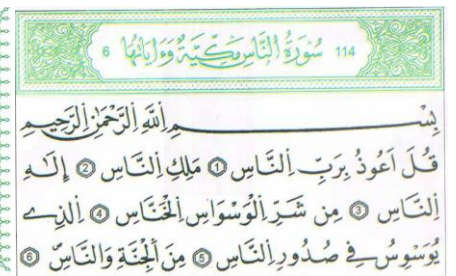 114 سُورَةُ النَّاسِ مَكِّيَّةٌ وَءَايَاتُهَا 6
بِسْــــــمِ اِللَّهِ اِلرَّحْمَٰنِ اِلرَّحِيمِ
قُلَ اَعُوذُ بِرَبِّ اِلنَّاسِ 1 مَلِكِ اِلنَّاسِ 2 إِلَٰهِ
اِلنَّاسِ 3 مِن شَرِّ اِلْوَسْوَاسِ اِلْخَنَّاسِ 4 اِلذِے
يُوَسْوِسُ فِے صُدُورِ اِلنَّاسِ 5 مِنَ اَلْجِنَّةِ وَالنَّاسِ 6